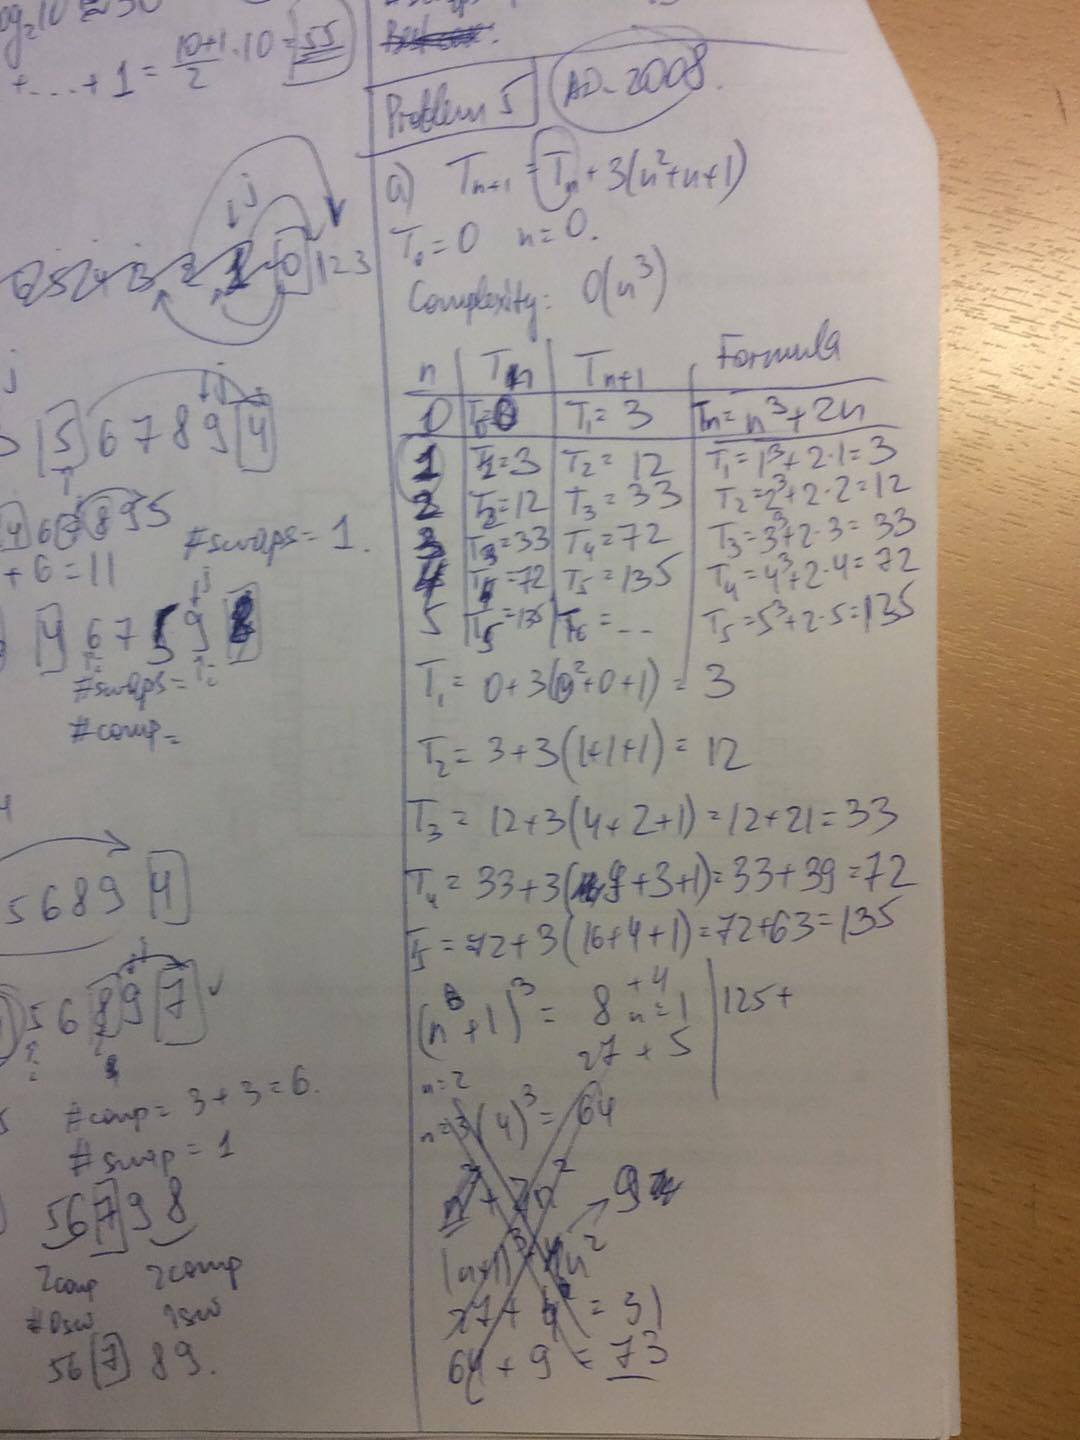 +....+1 = 10+1/2 · 10 = 55
123
5 6 7 8 9 4
#swaps = 1.
+ 6 = 11
4 6 7 5 9 8
#swaps =
#comp =
5 6 8 9 4
5 6 8 9 7
#comp = 3 + 3 = 6.
#swap = 1
5 6 7 9 8
2comp 2comp
#0sw 1sw
5 6 7 8 9.
Problem 5 AD-2008.
a) Tn+1 = Tn + 3(n²+n+1)
T₀ = 0 n = 0.
Complexity: O(n³)
n Tn Tn+1 Formula
0 T₀=0 T₁ = 3 Tn = n³ + 2n
1 T₁=3 T₂ = 12 T₁ = 1³ + 2·1 = 3
2 T₂=12 T₃ = 33 T₂ = 2³ + 2·2 = 12
3 T₃=33 T₄ = 72 T₃ = 3³ + 2·3 = 33
4 T₄=72 T₅ = 135 T₄ = 4³ + 2·4 = 72
5 T₅=135 T₆ = -- T₅ = 5³ + 2·5 = 135
T₁ = 0 + 3(0²+0+1) = 3
T₂ = 3 + 3(1+1+1) = 12
T₃ = 12 + 3(4+2+1) = 12 + 21 = 33
T₄ = 33 + 3(9+3+1) = 33 + 39 = 72
T₅ = 72 + 3(16+4+1) = 72 + 63 = 135
(n+1)³ = 8 +4 n=1 125+
27 + 5
n=2
n=3 (4)³ = 64
n³ + 2n²
27 + 4 = 31
64 + 9 = 73